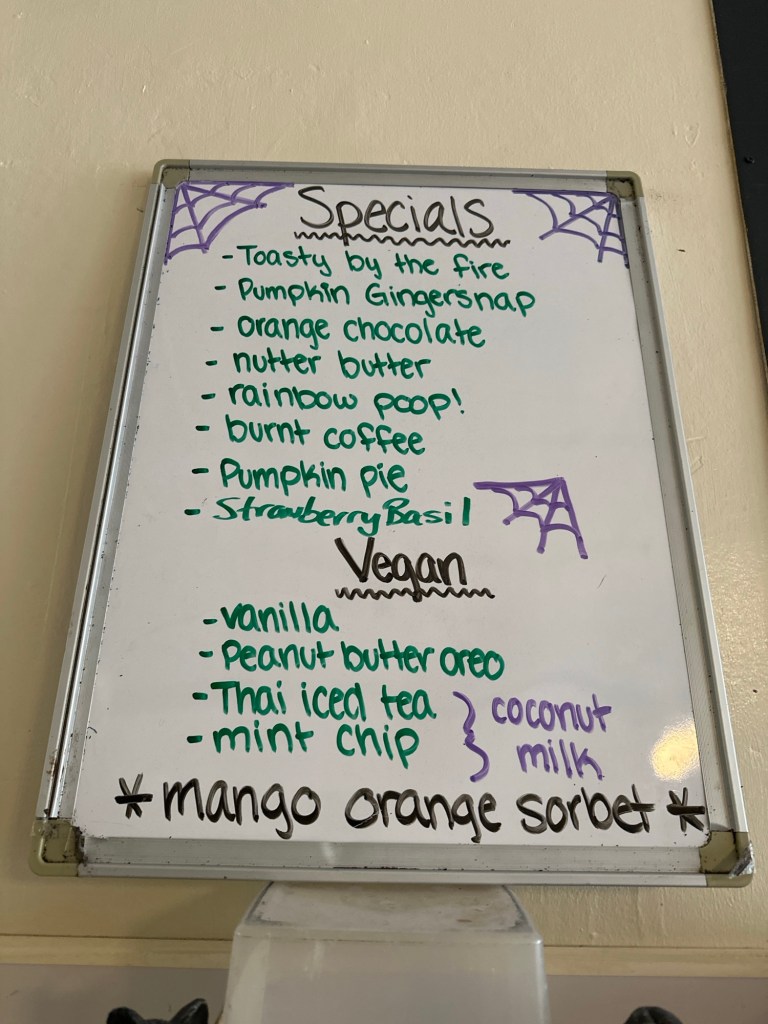 Specials
- Toasty by the fire
- Pumpkin Gingersnap
- orange chocolate
- nutter butter
- rainbow poop!
- burnt coffee
- Pumpkin pie
- Strawberry Basil
Vegan
- vanilla
- Peanut butter oreo
- Thai iced tea } coconut
- mint chip } milk
* mango orange sorbet *